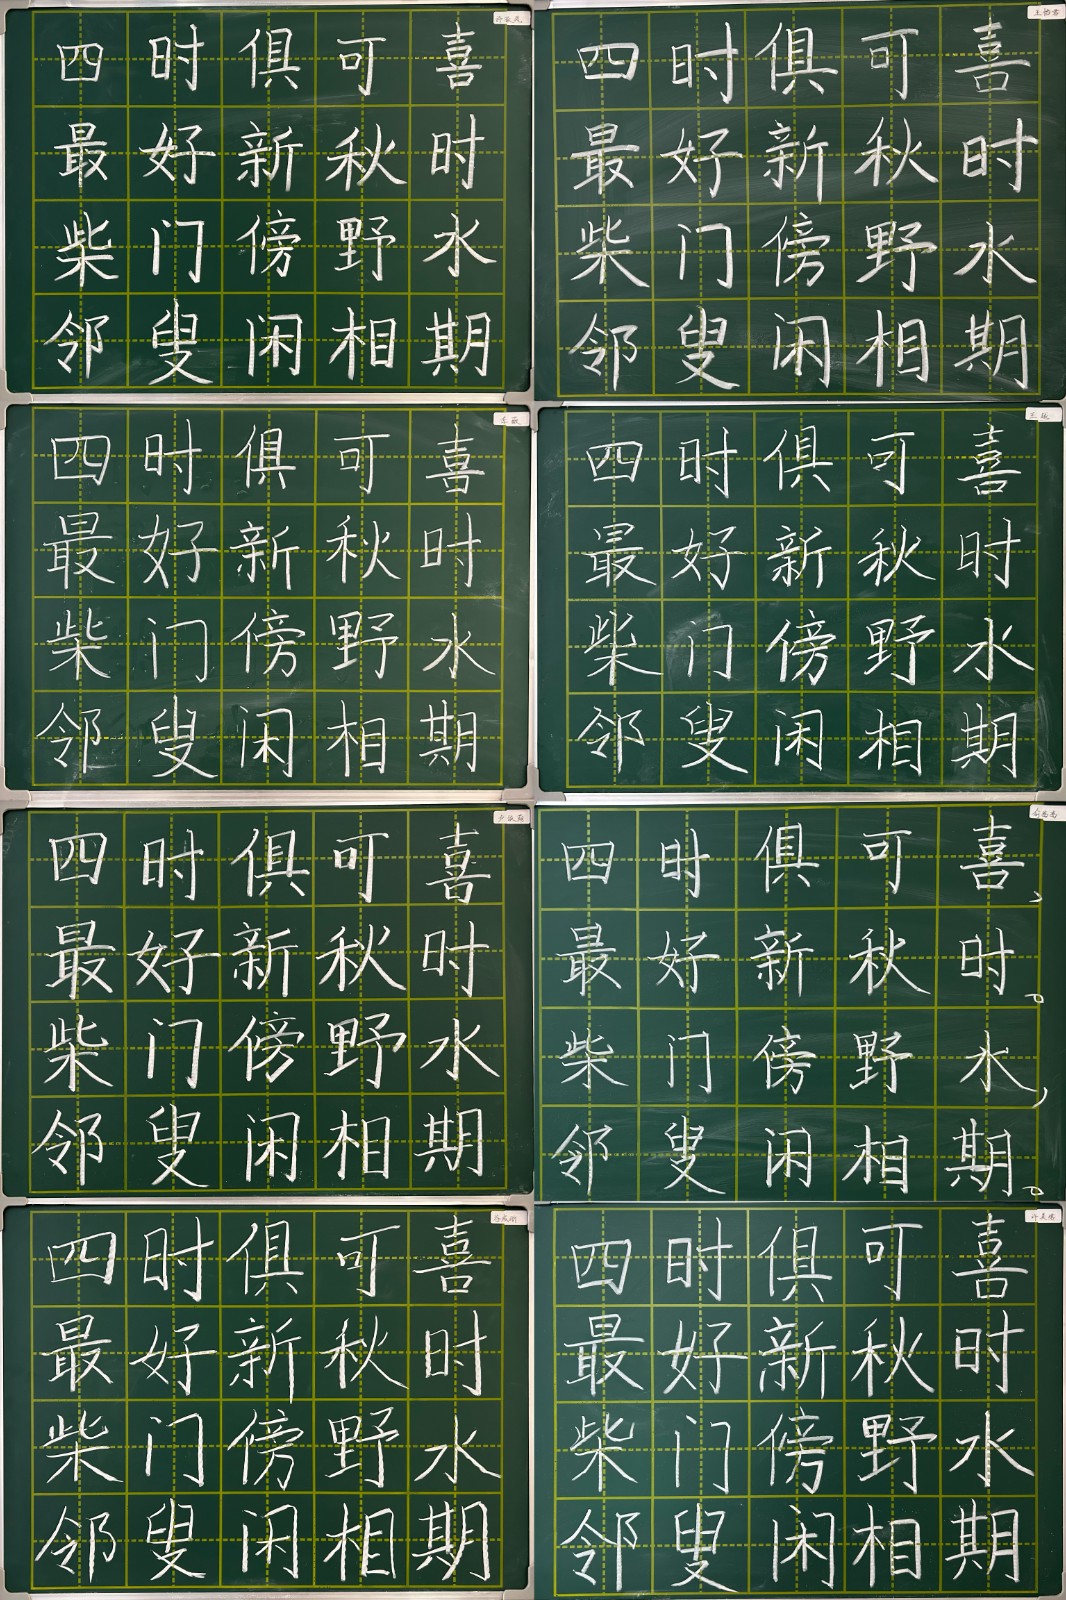 四时俱可喜
最好新秋时
柴门傍野水
邻叟闲相期
四时俱可喜
最好新秋时
柴门傍野水
邻叟闲相期
四时俱可喜
最好新秋时
柴门傍野水
邻叟闲相期
四时俱可喜
最好新秋时
柴门傍野水
邻叟闲相期
四时俱可喜
最好新秋时
柴门傍野水
邻叟闲相期
四时俱可喜，
最好新秋时。
柴门傍野水，
邻叟闲相期。
四时俱可喜
最好新秋时
柴门傍野水
邻叟闲相期
四时俱可喜
最好新秋时
柴门傍野水
邻叟闲相期